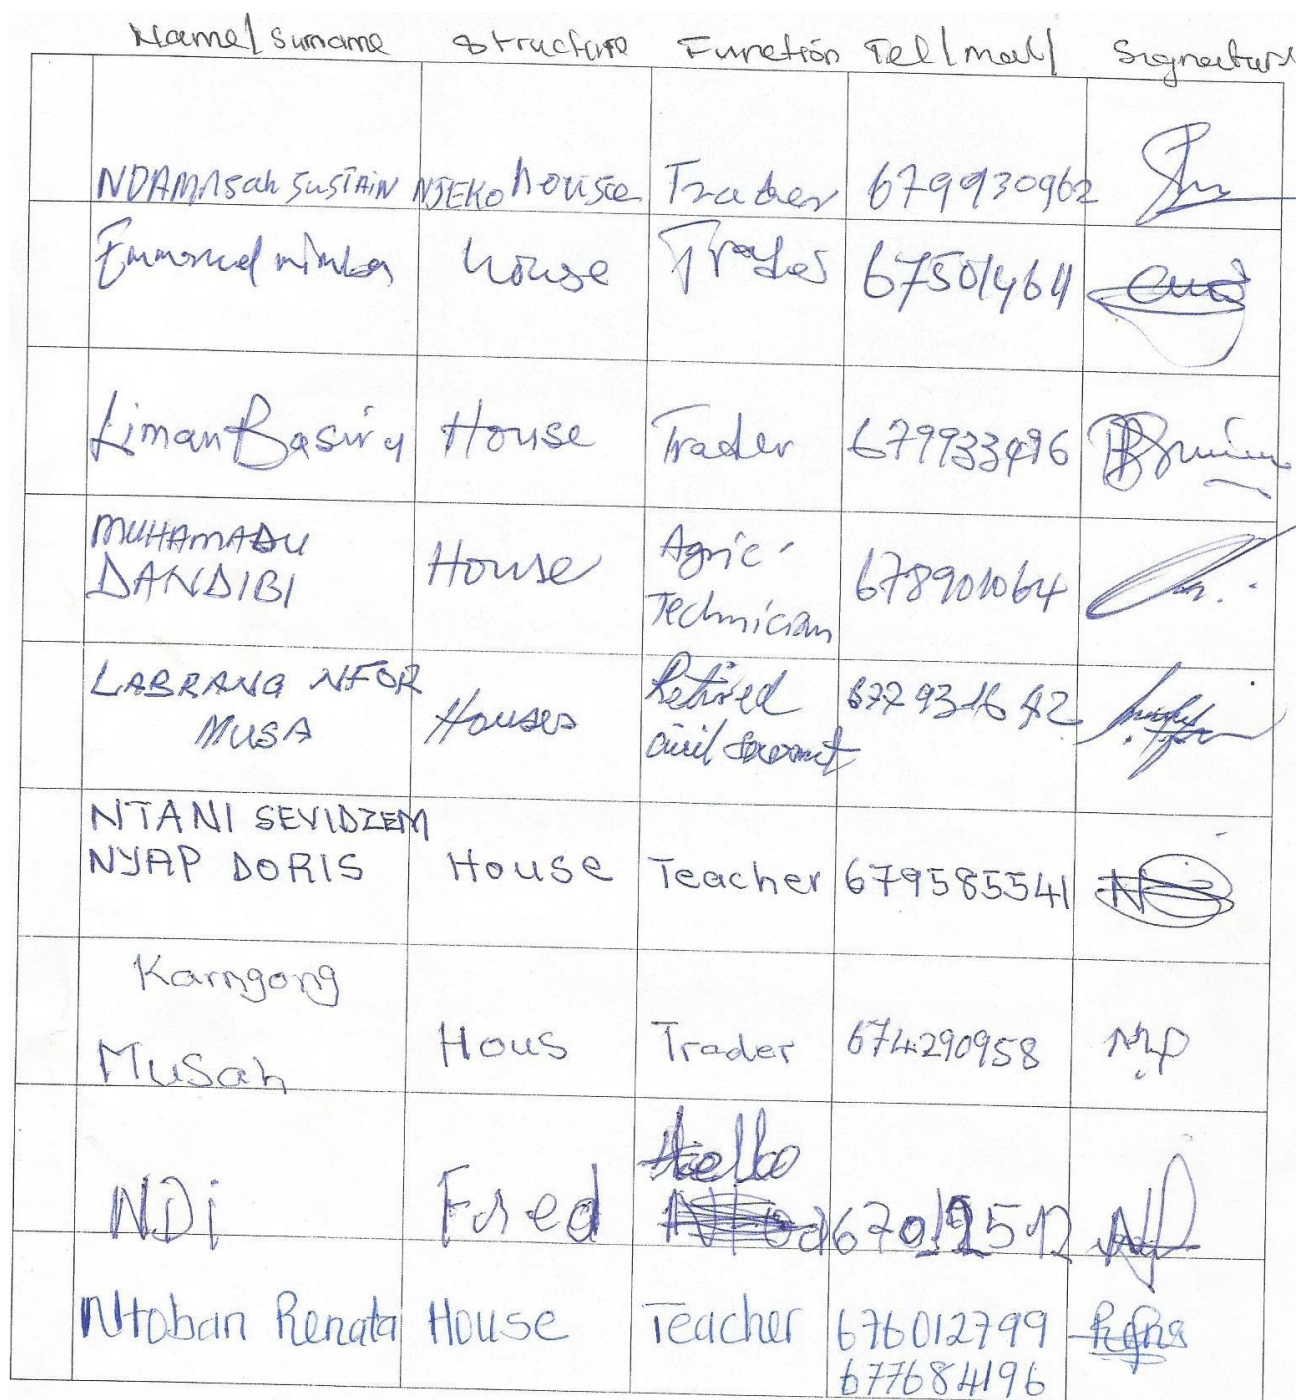 Name/Surname Structure Function Tel/mail/ Signature
NDAMNSah SUSTAIN NJEKO house Trader 679930962
Emmanuel house Trader 675014611
Liman Basiru House Trader 679933496
MUHAMADU
DANDIBI House Agric-
Technician 678901064
LABRANG NFOR
MUSA Houses Retired
civil servant
NTANI SEVIDZEM
NYAP DORIS House Teacher 679585541
Karngong
Musah Hous Trader 674290958
NDi Fred
Ntoban Renata House Teacher 676012799
677684196